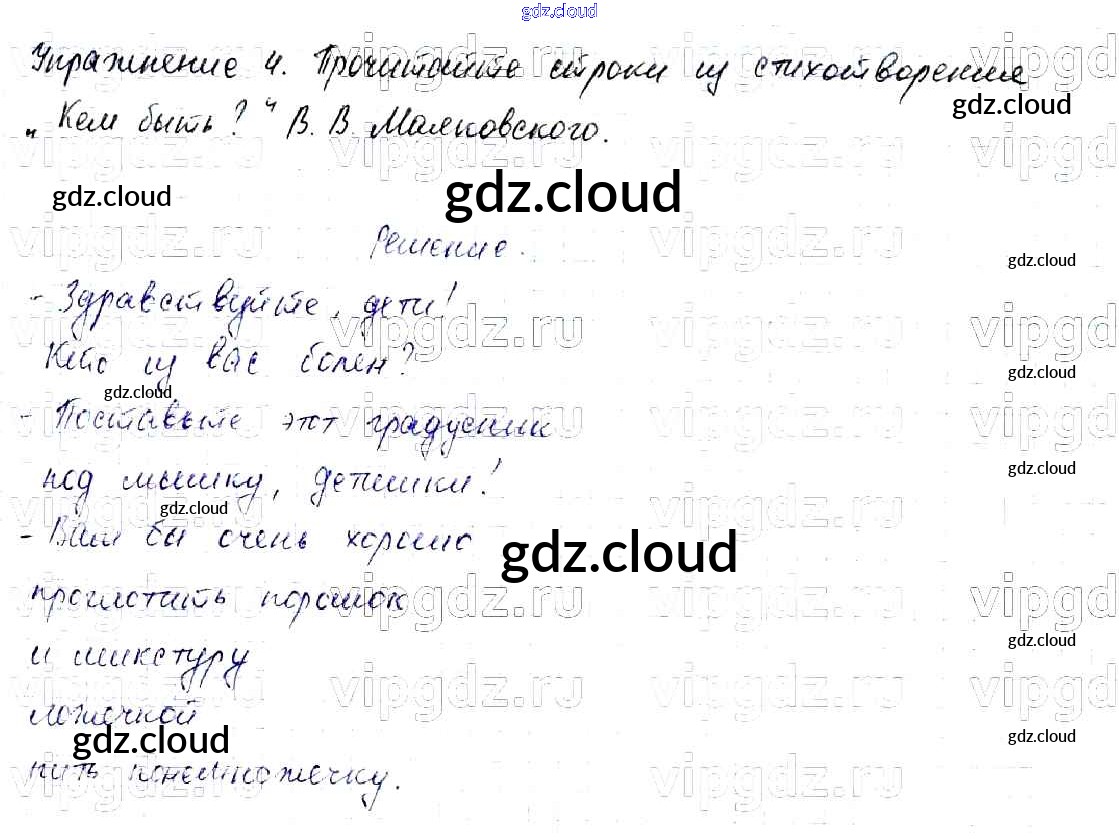 gdz.cloud
Упражнение 4. Прочитайте строки из стихотворения
„Кем быть?“ В. В. Маяковского.
gdz.cloud
gdz.cloud
gdz.cloud
Решение.
gdz.cloud
- Здравствуйте, дети!
vipgdz.ru
Кто из вас болен?
gdz.cloud
gdz.cloud
- Поставьте этот градусник
под мышку, детишки!
gdz.cloud
gdz.cloud
- Вам бы очень хорошо
gdz.cloud
проглотить порошок
vipgdz.ru
gdz.cloud
и микстуру
vipgdz.ru
ложечкой
gdz.cloud
gdz.cloud
пить понемножечку.